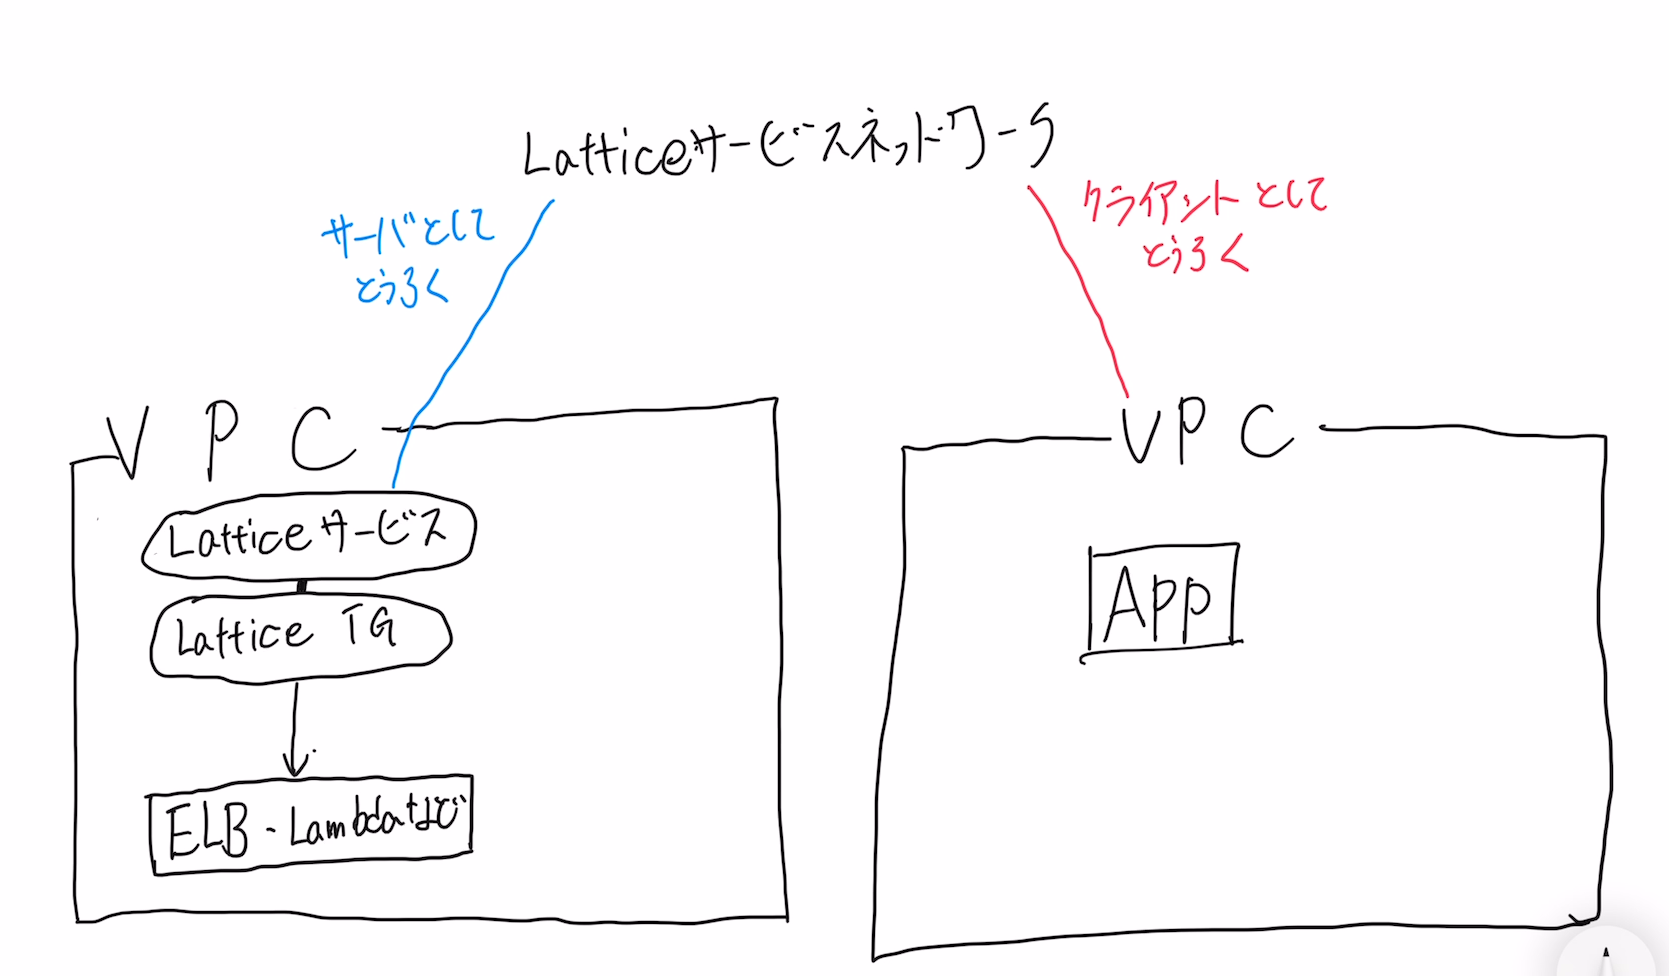 Latticeサービスネットワーク
サーバとして
とうろく
クライアントとして
とうろく
VPC
Latticeサービス
Lattice TG
ELB・Lambdaなど
VPC
App